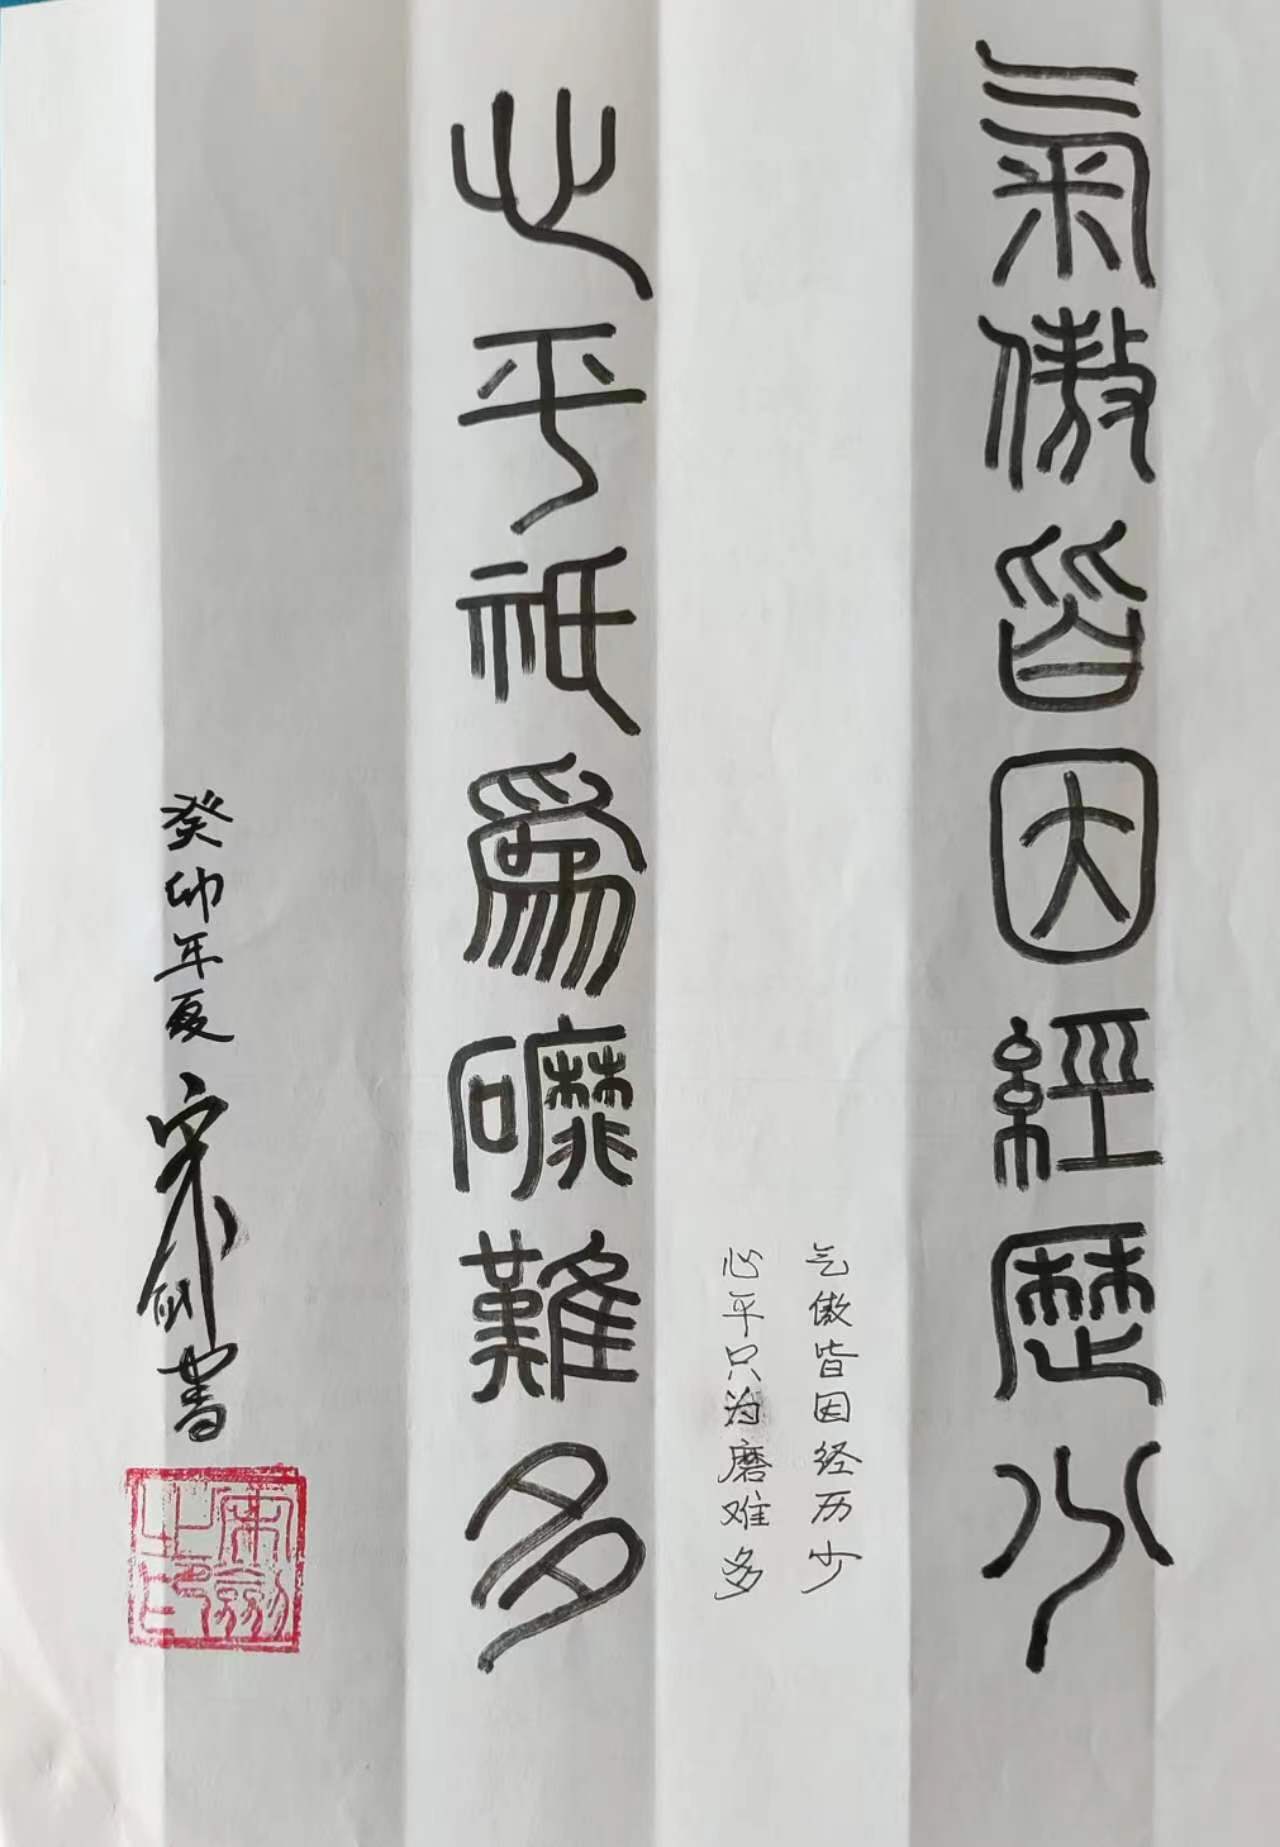 氣傲皆因經歷少
气傲皆因经历少
心平只为磨难多
心平祇為礳難多
癸卯年夏 宋剑书
宋劍之印